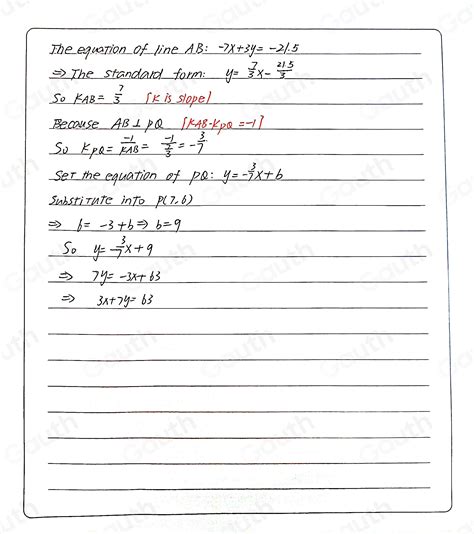 The equation of line AB: -7x+3y= -21.5
⇒ The standard form: y= 7/3 x- 21.5/3
So KAB= 7/3 [K is slope]
Because AB⊥PQ [KAB·KPQ=-1]
So KPQ= -1/KAB = -1/(7/3) = -3/7
Set the equation of PQ: y=-3/7 x+b
Substitute into P(7,6)
⇒ 6= -3+b⇒ b=9
So y=-3/7 x+9
⇒ 7y= -3x+63
⇒ 3x+7y= 63
Gauth